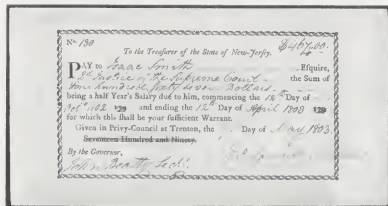 No. 130 $467.00
To the Treasurer of the State of New-Jersey.
PAY to Isaac Smith Esquire,
2d. Justice of the Supreme Court the Sum of
Four hundred Sixty Seven Dollars.
being a half Year's Salary due to him, commencing the 12th Day of
Octr. 1802 179 and ending the 12th Day of April 1803 179
for which this shall be your sufficient Warrant.
Given in Privy-Council at Trenton, the Day of May 1803
Seventeen Hundred and Ninety.
By the Governor,
John Beatty Secy.